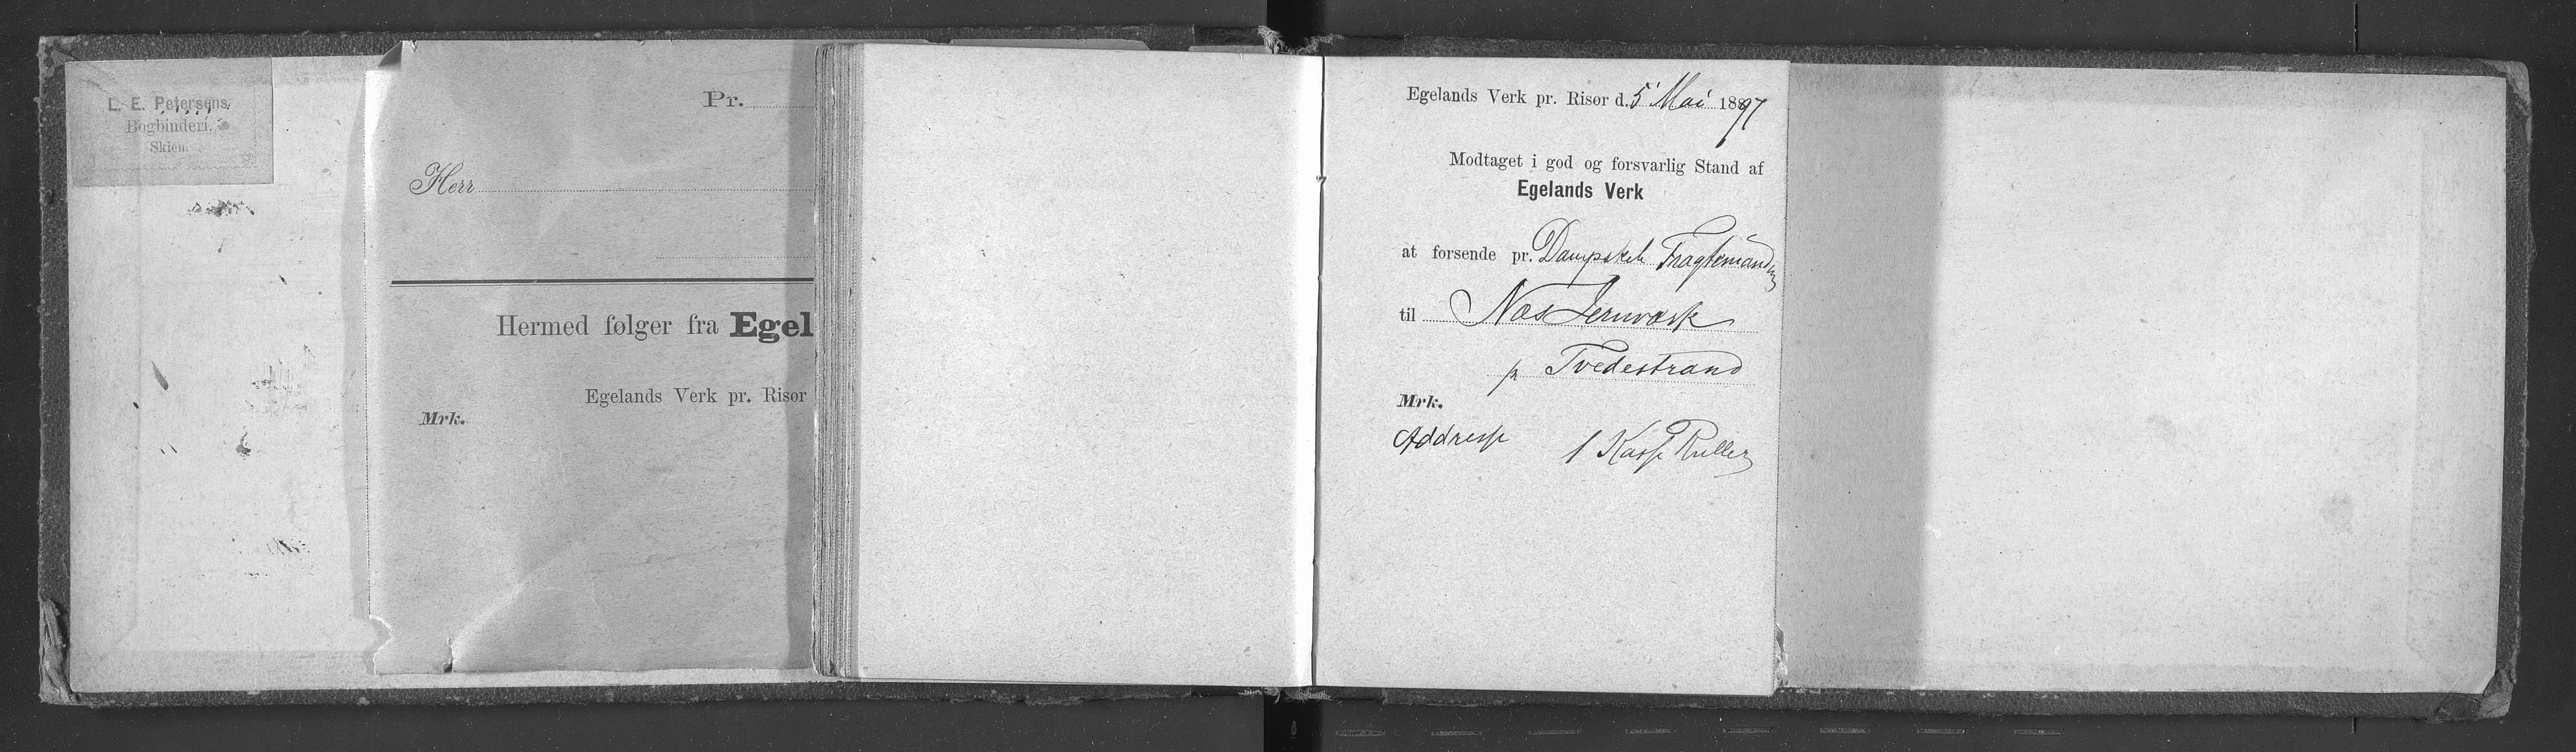 L. E. Petersens
Bogbinderi,
Skien.
Pr.
Herr
Hermed følger fra Egel
Egelands Verk pr. Risør
Mrk.
Egelands Verk pr. Risør d. 5 Mai 1897
Modtaget i god og forsvarlig Stand af
Egelands Verk
at forsende pr. Dampsk Fragtemanden
til Næs Jernværk
pr Tvedestrand
Mrk.
Addresse 1 Kasse Ruller